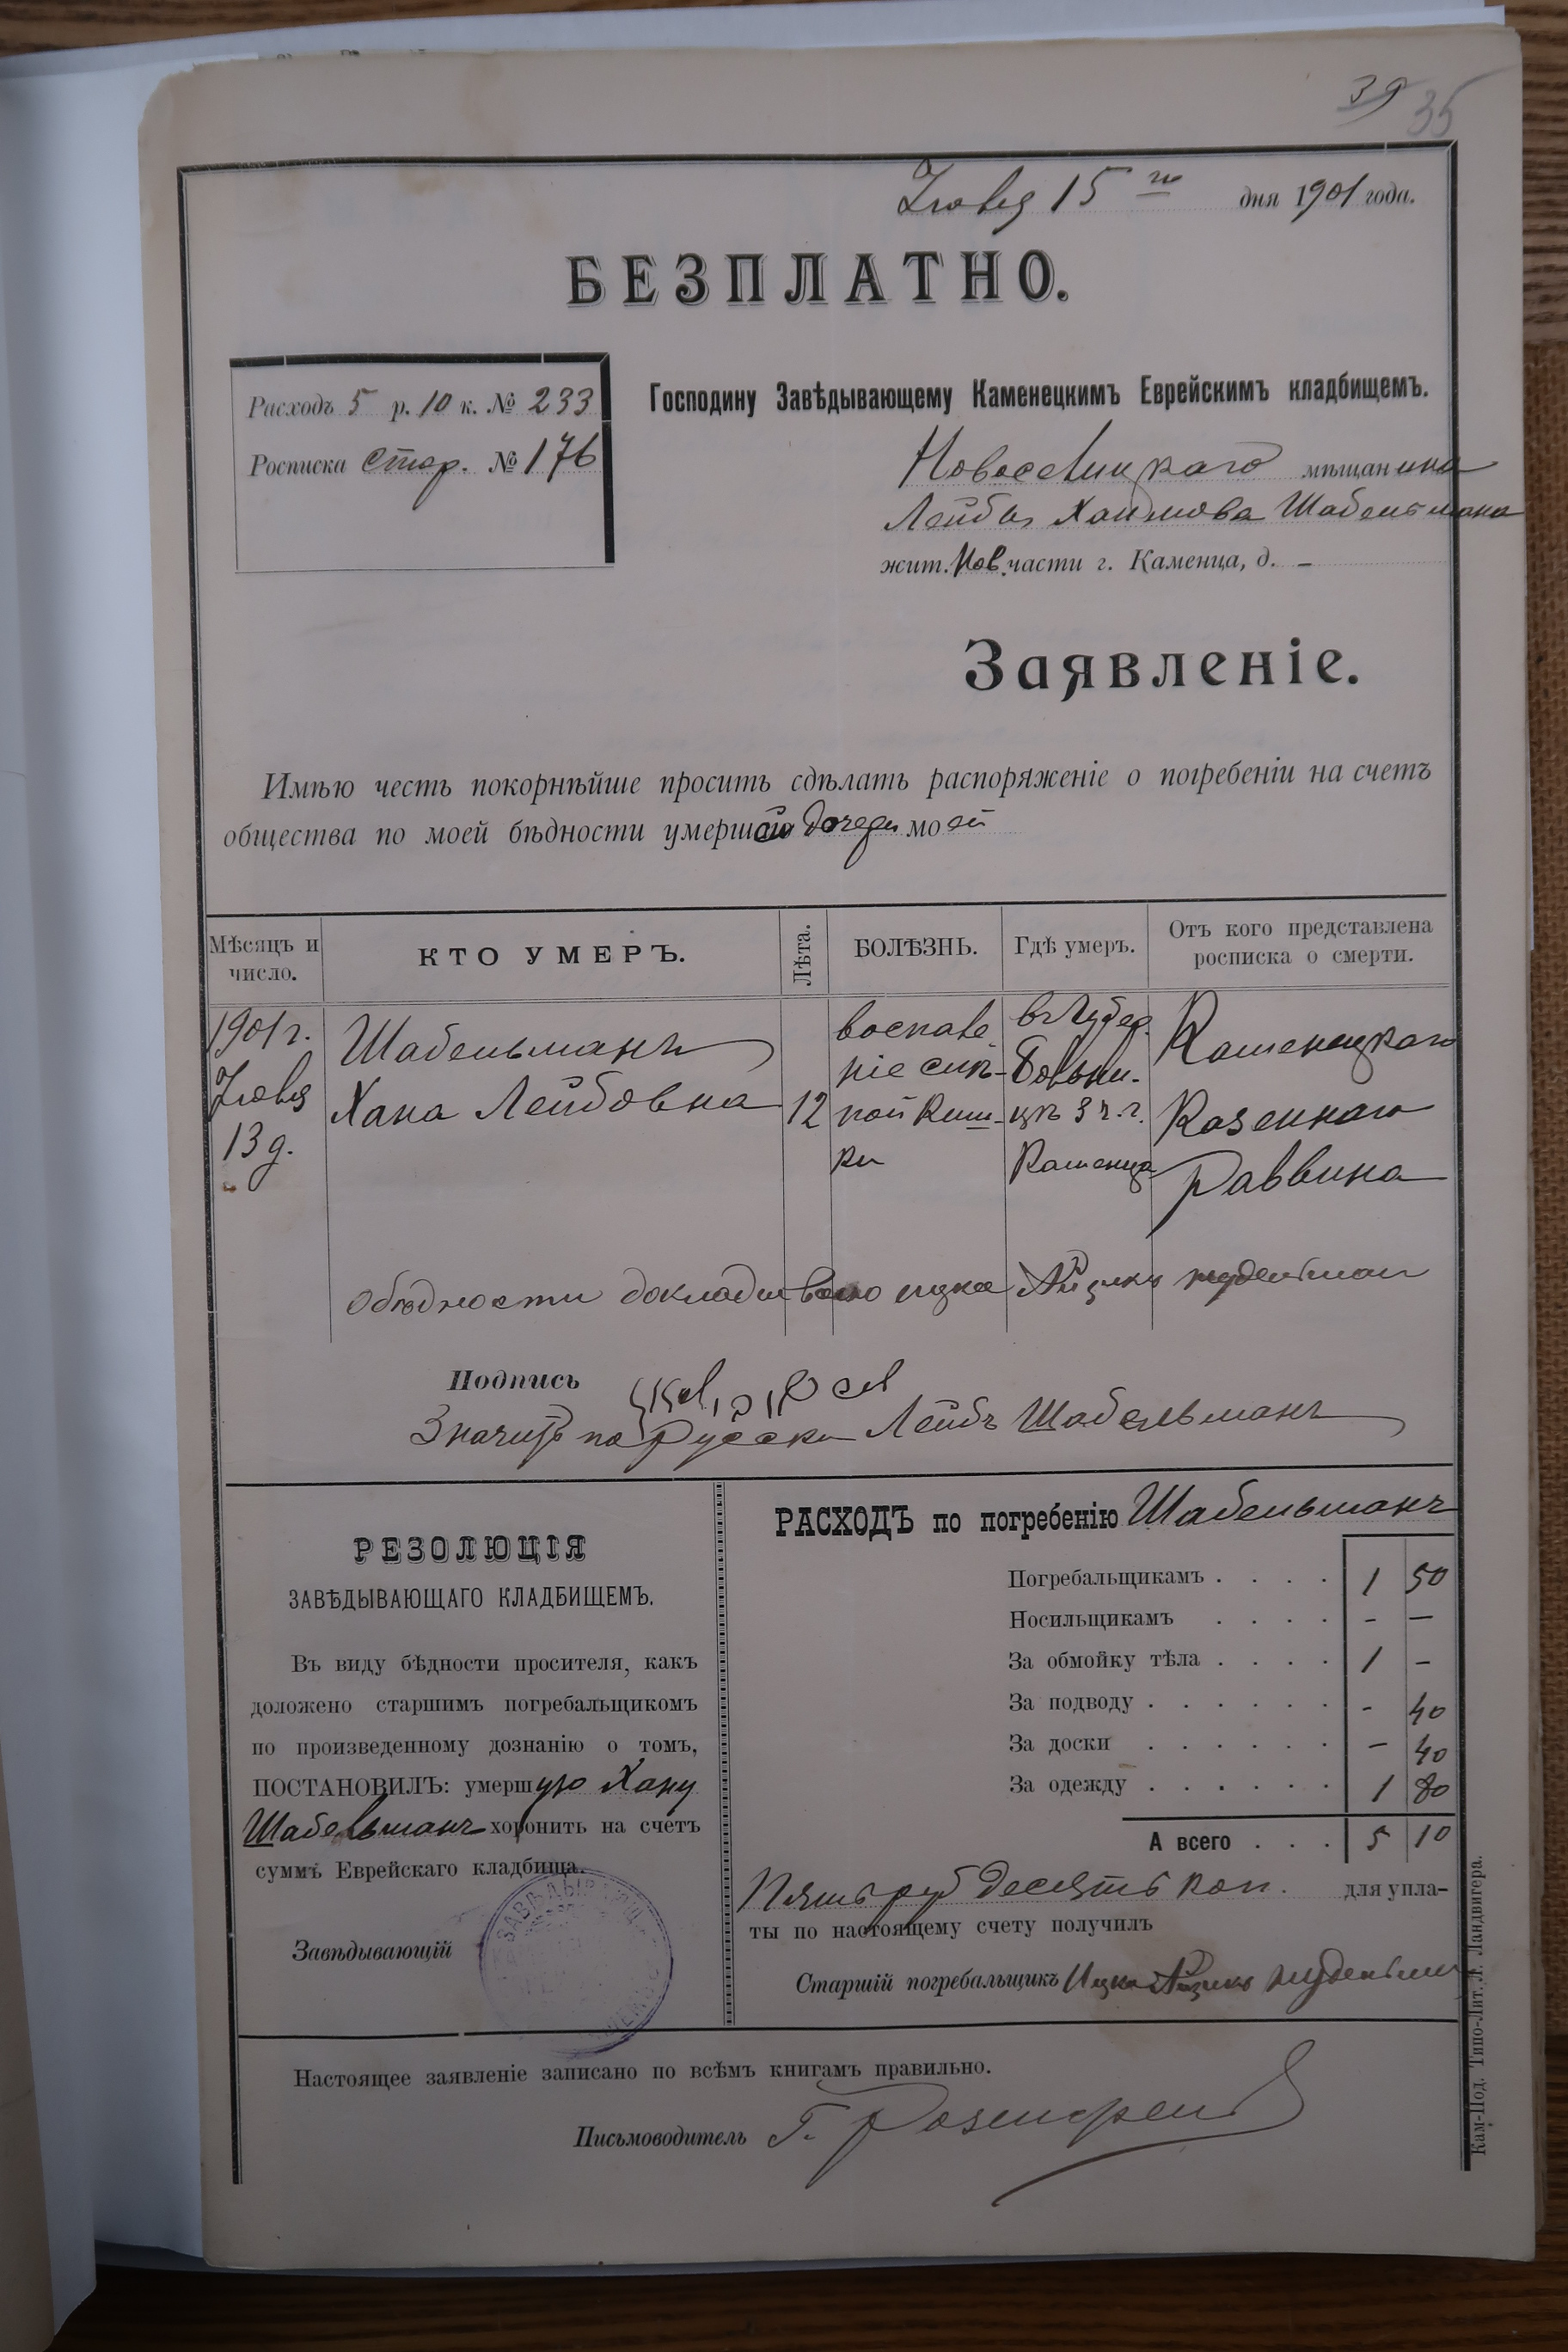 39 35
Іюля 15 го дня 1901 года.
БЕЗПЛАТНО.
Расходъ 5 р. 10 к. № 233
Росписка стор. № 176
Господину Завѣдывающему Каменецкимъ Еврейскимъ кладбищемъ.
Новоселицкаго мѣщанина
Лейбы Хаимова Шабельмана
жит. Нов. части г. Каменца, д. –
Заявленіе.
Имѣю честь покорнѣйше просить сдѣлать распоряженіе о погребеніи на счетъ
общества по моей бѣдности умершей дочери моей
Мѣсяцъ и число.
КТО УМЕРЪ.
Лѣта.
БОЛѢЗНЬ.
Гдѣ умеръ.
Отъ кого представлена росписка о смерти.
1901 г. Іюля 13 д.
Шабельманъ Хана Лейбовна
12
воспале ніе слѣ- пой киш- ки
въ Губер. Больни- цѣ 3 ч. г. Каменца
Каменецкаго Казеннаго Раввина
обѣдности докладывалъ ицко Айзикъ
Подпись
Значитъ по Русски Лейбъ Шабельманъ
РЕЗОЛЮЦІЯ
ЗАВѢДЫВАЮЩАГО КЛАДБИЩЕМЪ.
Въ виду бѣдности просителя, какъ
доложено старшимъ погребальщикомъ
по произведенному дознанію о томъ,
ПОСТАНОВИЛЪ: умершую Хану
Шабельманъ хоронить на счетъ
суммъ Еврейскаго кладбища.
Завѣдывающій
РАСХОДЪ по погребенію Шабельманъ
Погребальщикамъ . . . . 1 50
Носильщикамъ . . . . – –
За обмойку тѣла . . . . 1 –
За подводу . . . . . . - 40
За доски . . . . . . – 40
За одежду . . . . . . 1 80
А всего . . . 5 10
Пять руб десять коп. для упла-
ты по настоящему счету получилъ
Старшій погребальщикъ Ицко Айзикъ
Настоящее заявленіе записано по всѣмъ книгамъ правильно.
Письмоводитель Г.
Кам-Под. Типо-Лит. Л. Ландвигера.